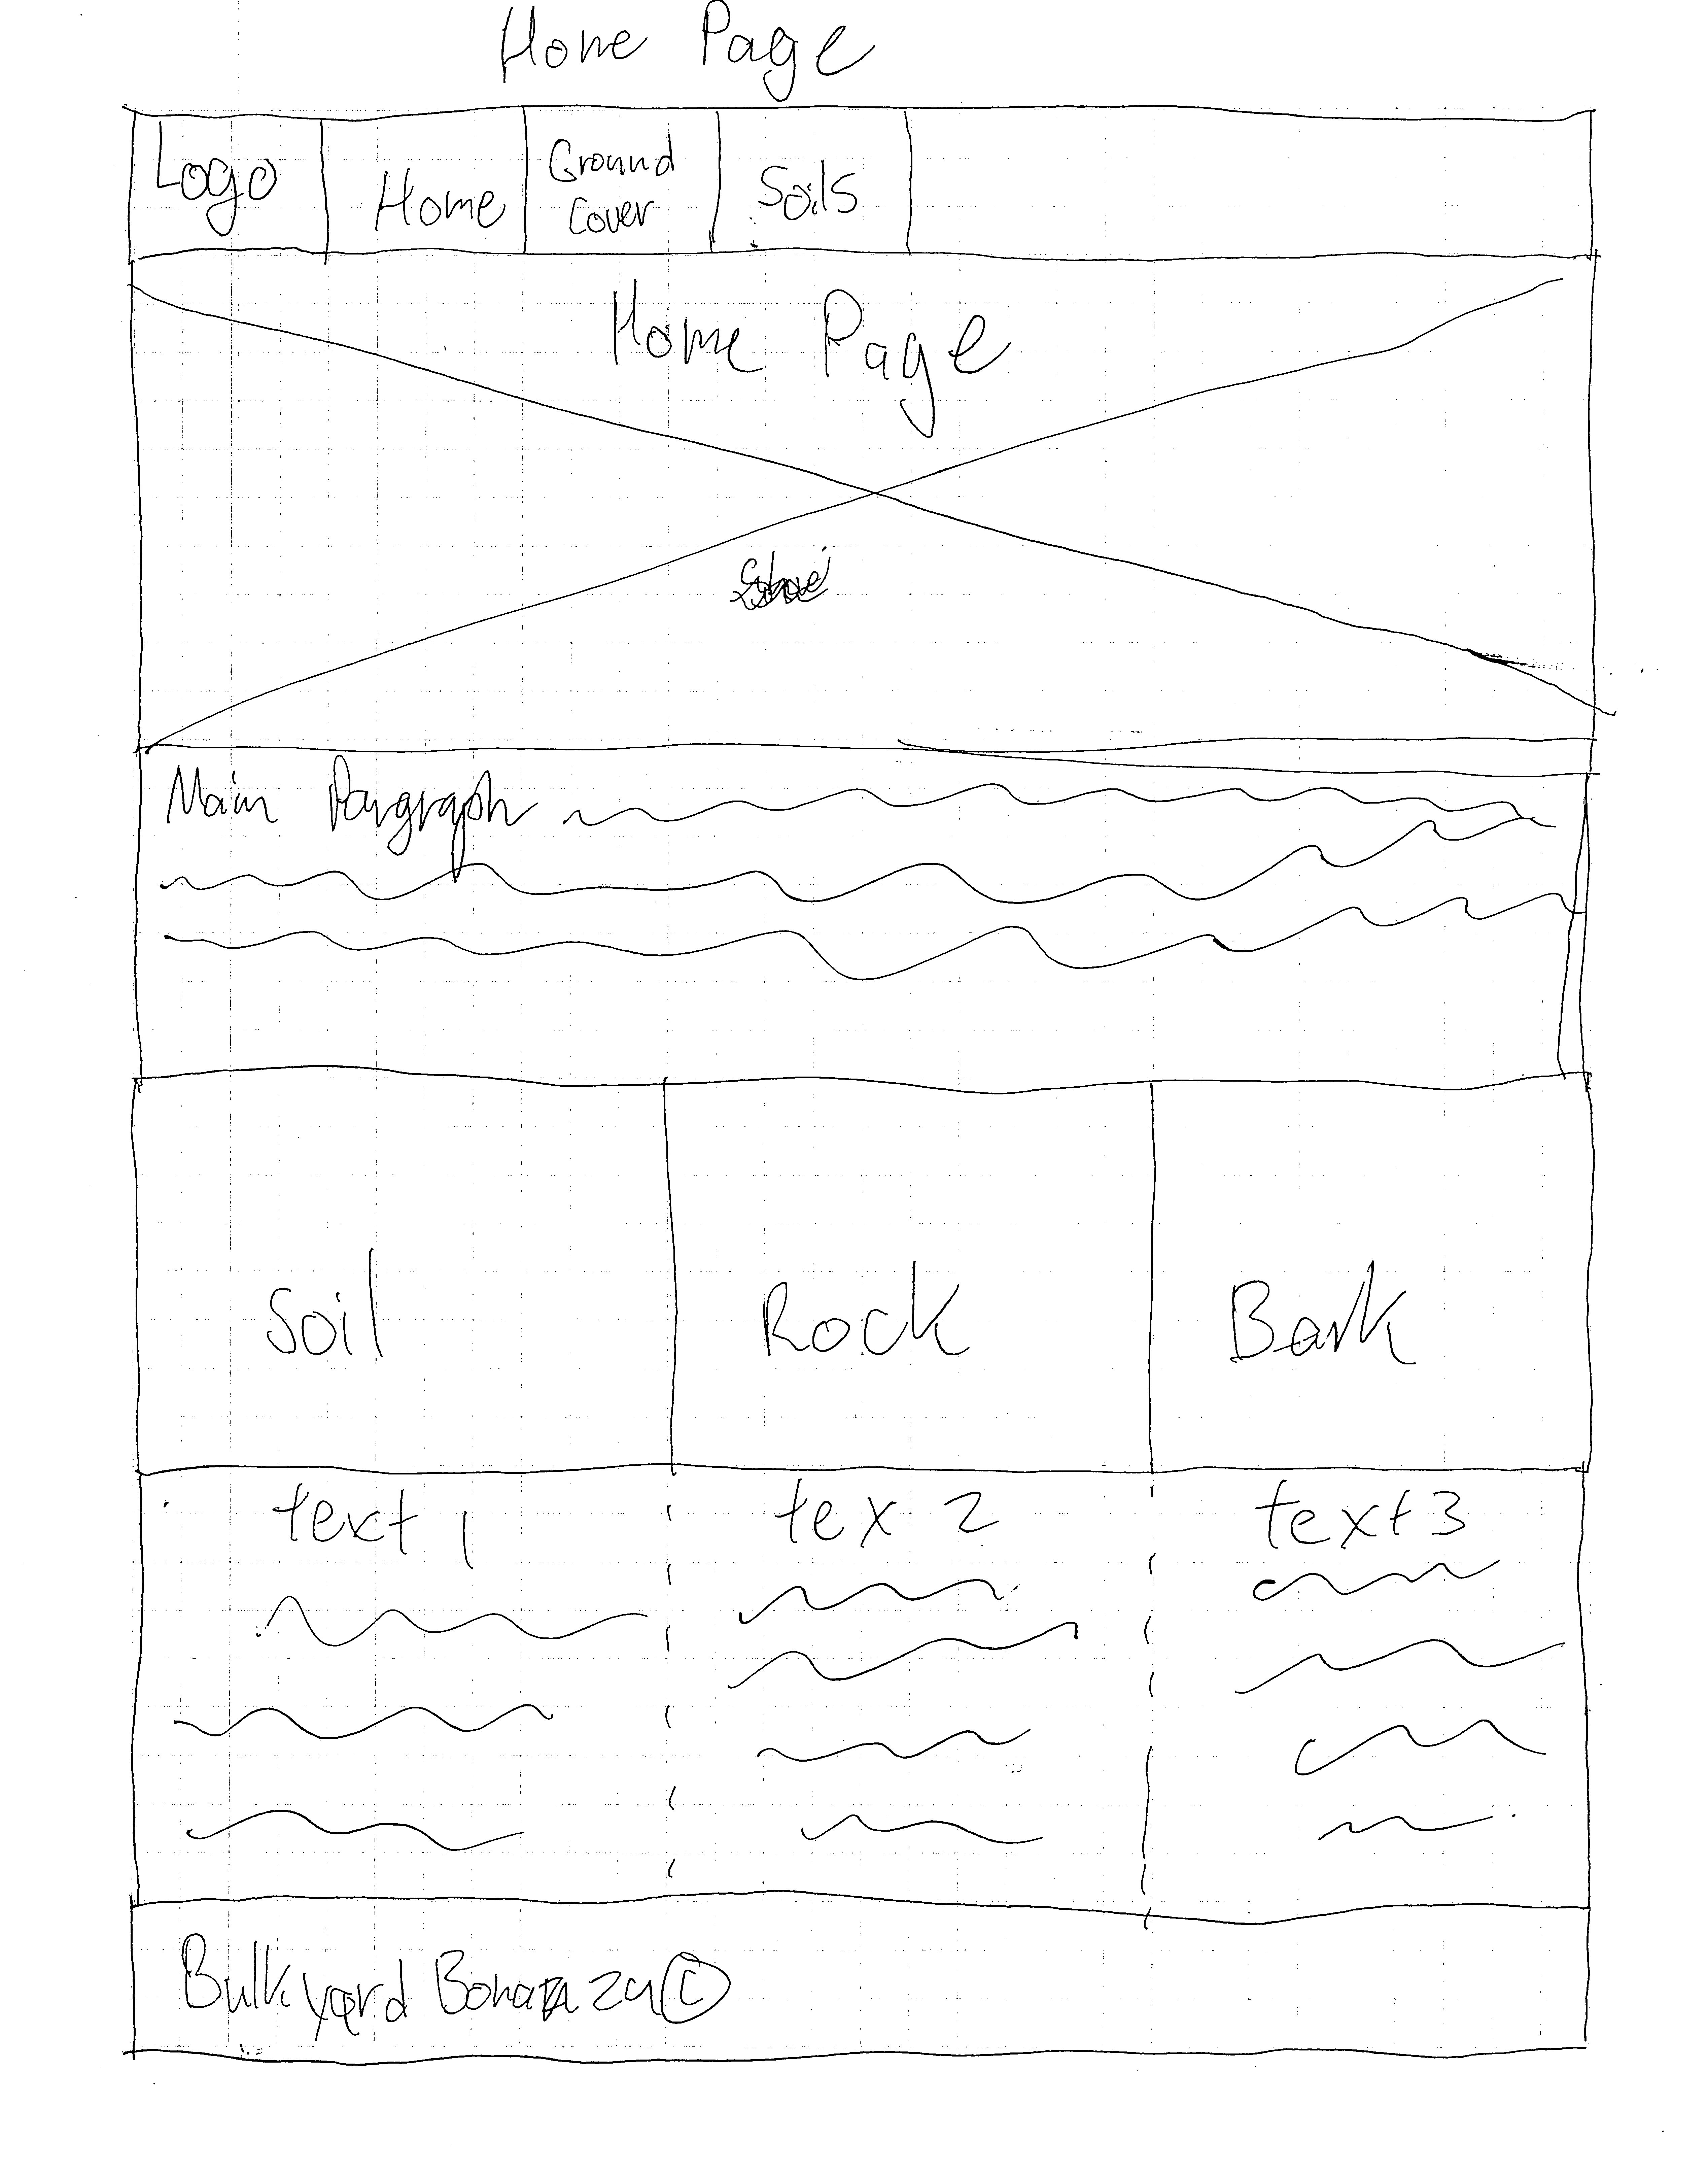 Home Page
Logo
Home
Ground
Cover
Soils
Home Page
Main Paragraph
Soil
Rock
Bark
text 1
tex 2
text 3
Bulkyard Bonanza ©